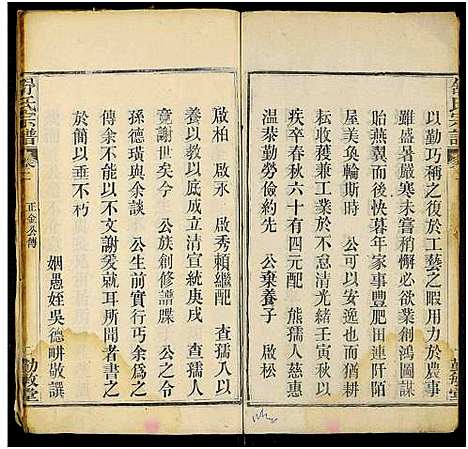 舒氏宗譜
以勤巧稱之復於工藝之暇用力於農事
雖盛暑嚴寒未嘗稍懈必欲業創鴻圖謀
貽燕翼而後快暮年家事豐肥田連阡陌
屋美奐輪斯時　公可以安逸而　公猶
耘收穫兼工業於不怠清光緒壬寅秋以
疾卒春秋六十有四元配　熊孺人慈惠
溫恭勤勞儉約先　公棄養子　啟松
啟柏　啟永　啟秀賴繼配　查孺人以
養以教以底成立清宣統庚戌　查孺人
竟謝世矣今　公族創修譜牒　公之令
孫德璜與余談　公生前實行丐余為之
傳余不能以不文謝爰就耳所聞者書之
於簡以垂不朽
姻愚姪吳德畊敬譔
舒氏宗譜
卷
正金公傳
勤敬堂